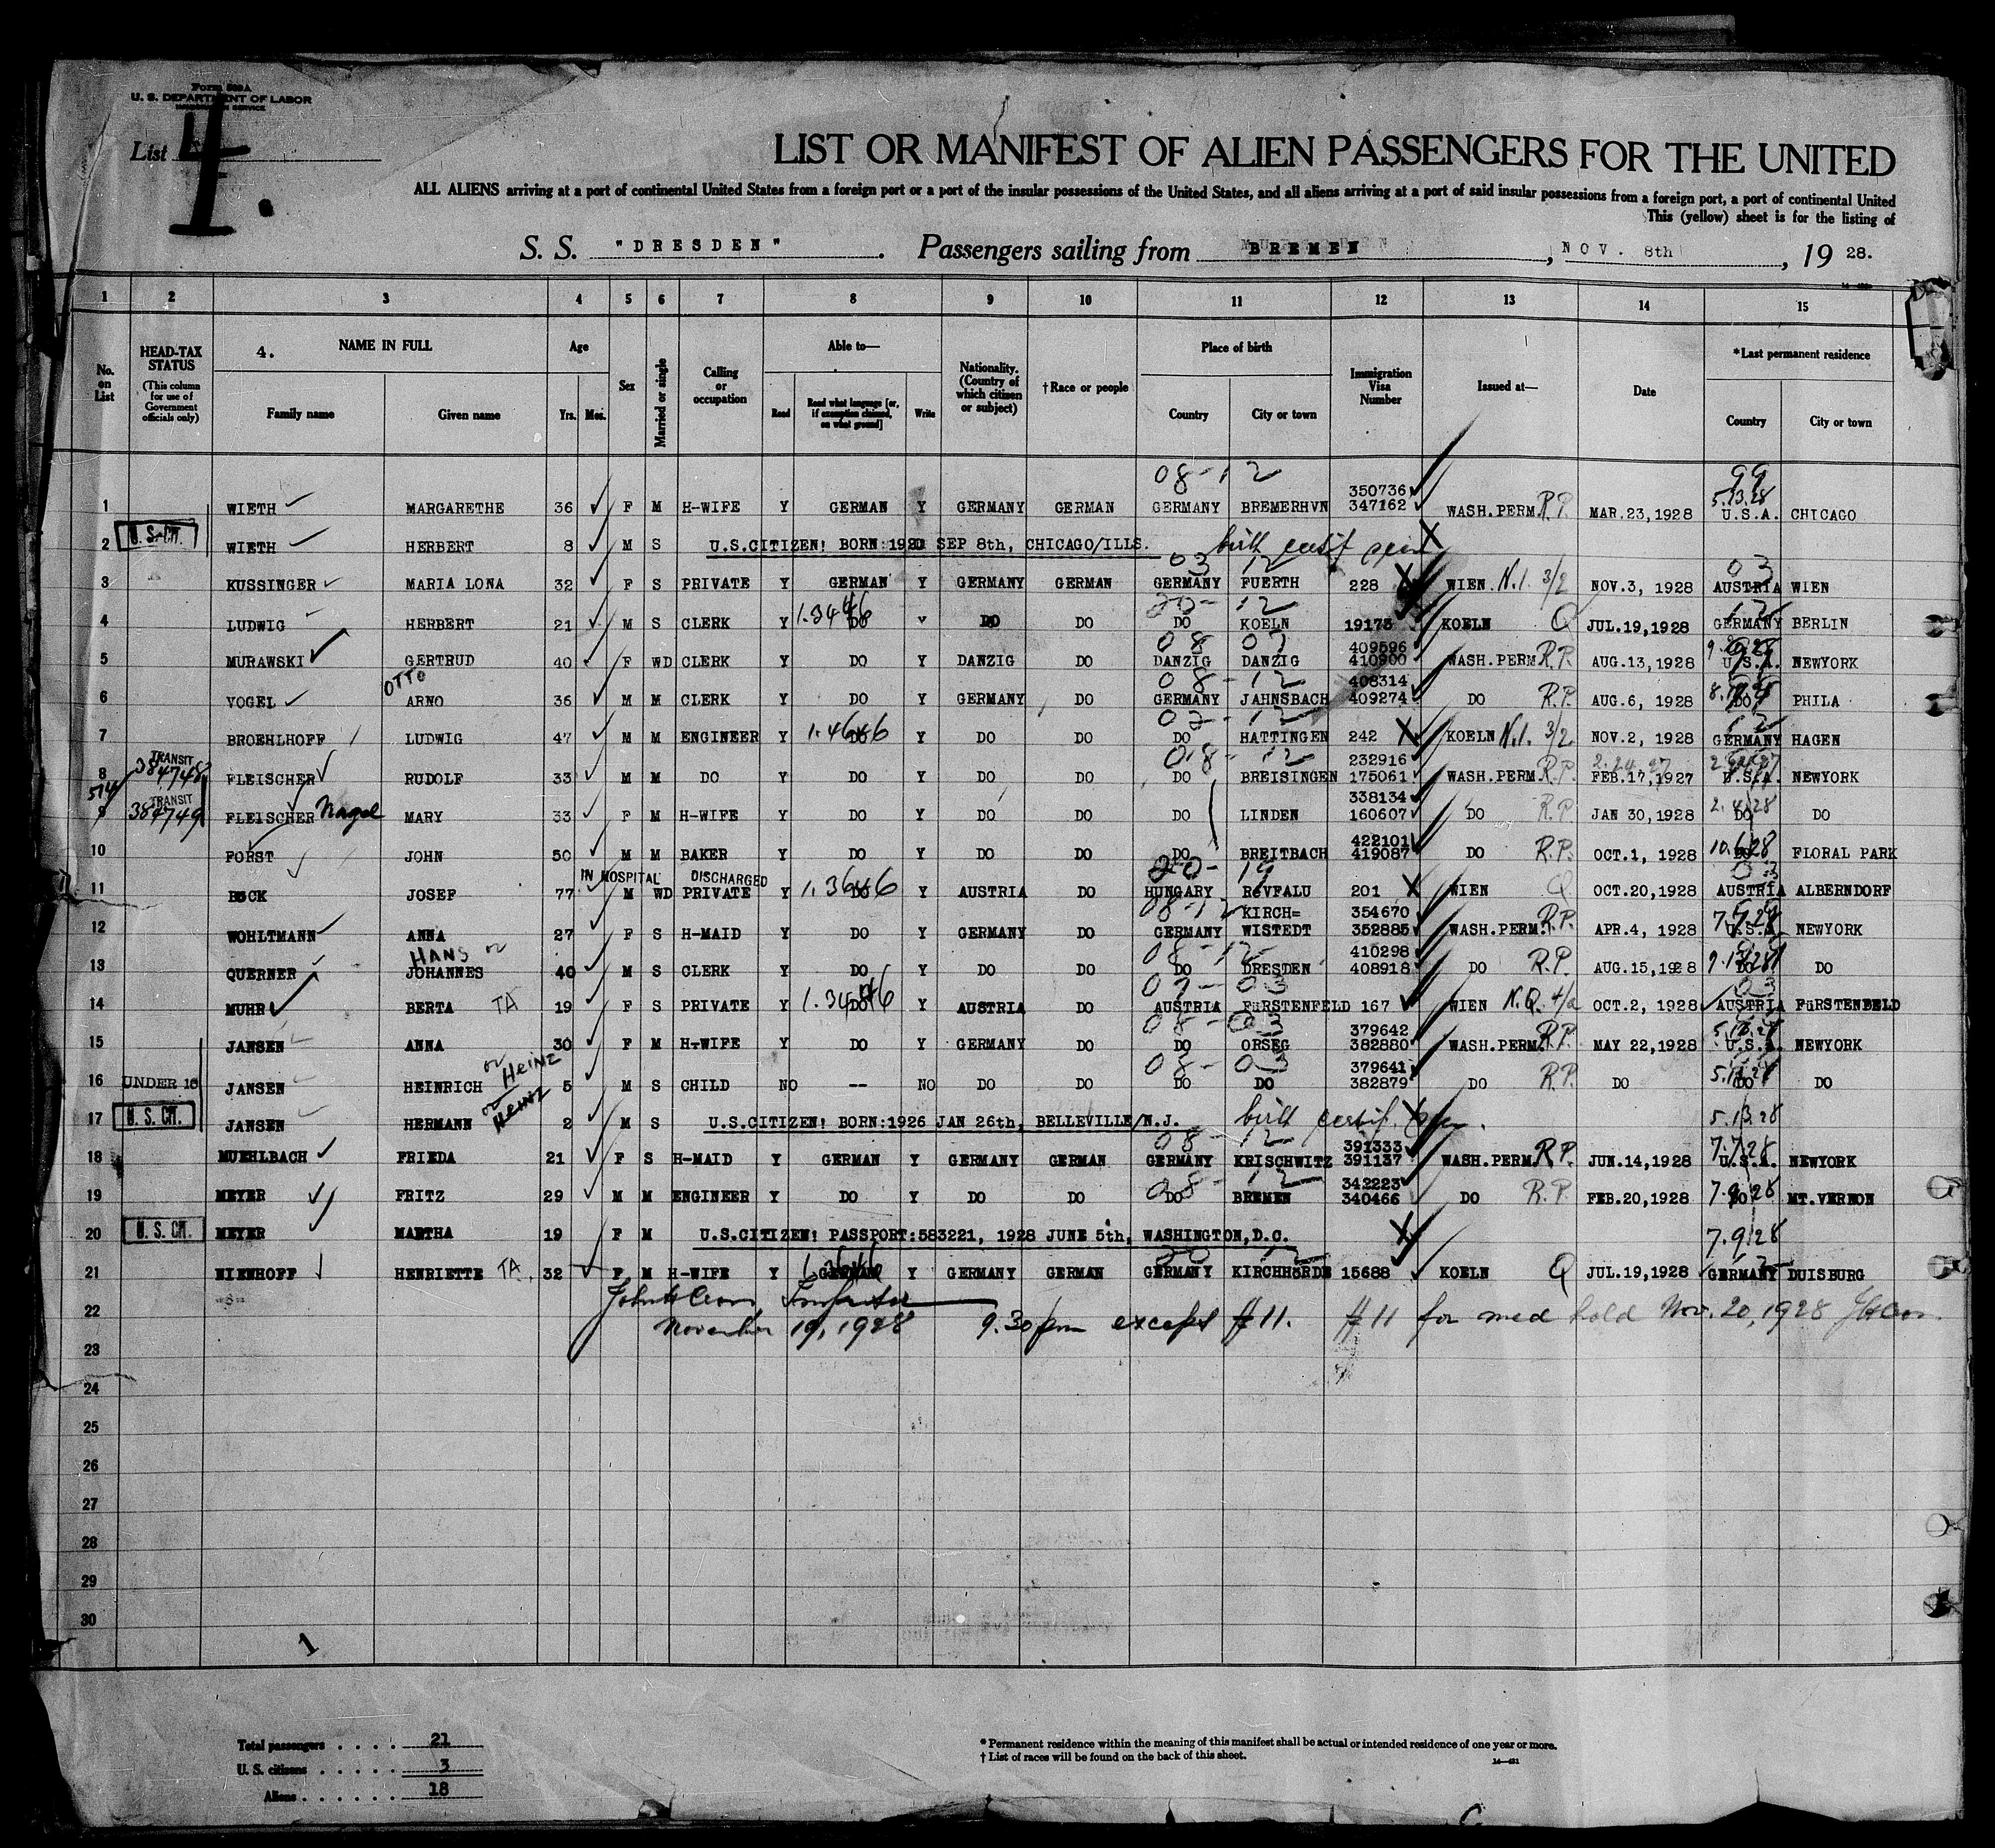 Form 500A
U. S. DEPARTMENT OF LABOR
IMMIGRATION SERVICE
List 4.
LIST OR MANIFEST OF ALIEN PASSENGERS FOR THE UNITED
ALL ALIENS arriving at a port of continental United States from a foreign port or a port of the insular possessions of the United States, and all aliens arriving at a port of said insular possessions from a foreign port, a port of continental United
This (yellow) sheet is for the listing of
S. S. "DRESDEN". Passengers sailing from BREMEN, NOV. 8th, 1928.
1 2 3 4 5 6 7 8 9 10 11 12 13 14 15
No. on List
HEAD-TAX STATUS (This column for use of Government officials only)
4. NAME IN FULL Family name Given name
Age Yrs. Mos.
Sex
Married or single
Calling or occupation
Able to— Read Read what language [or, if exemption claimed, on what ground] Write
Nationality. (Country of which citizen or subject)
† Race or people
Place of birth Country City or town
Immigration Visa Number
Issued at—
Date
*Last permanent residence Country City or town
08-12 99
1 WIETH MARGARETHE 36 F M H-WIFE Y GERMAN Y GERMANY GERMAN GERMANY BREMERHVN 350736 347162 WASH.PERM. R.P. MAR.23,1928 5.13.28 U.S.A. CHICAGO
2 U.S.CIT. WIETH HERBERT 8 M S U.S.CITIZEN! BORN:1920 SEP 8th, CHICAGO/ILLS. birth certif
03 12 03
3 KUSSINGER MARIA LONA 32 F S PRIVATE Y GERMAN Y GERMANY GERMAN GERMANY FUERTH 228 WIEN N.I. 3/2 NOV.3, 1928 AUSTRIA WIEN
20-12 12
4 LUDWIG HERBERT 21 M S CLERK Y DO DO DO DO KOELN 19175 KOELN Q JUL.19,1928 GERMANY BERLIN
08 07
5 MURAWSKI GERTRUD 40 F WD CLERK Y DO Y DANZIG DO DANZIG DANZIG 409596 410900 WASH.PERM. R.P. AUG.13,1928 U.S.A. NEWYORK
08-12
6 VOGEL OTTO ARNO 36 M M CLERK Y DO Y GERMANY DO GERMANY JAHNSBACH 408314 409274 DO R.P. AUG.6, 1928 DO PHILA
02-12 12
7 BROEHLHOFF LUDWIG 47 M M ENGINEER Y DO Y DO DO DO HATTINGEN 242 KOELN N.I. 3/2 NOV.2, 1928 GERMANY HAGEN
08-12
8 TRANSIT 384748 FLEISCHER RUDOLF 33 M M DO Y DO Y DO DO DO BREISINGEN 232916 175061 WASH.PERM. R.P. 2.24.27 FEB.17,1927 U.S.A. NEWYORK
9 TRANSIT 384749 FLEISCHER Nagel MARY 33 F M H-WIFE Y DO Y DO DO DO LINDEN 338134 160607 DO R.P. JAN 30,1928 DO DO
10 FORST JOHN 50 M M BAKER Y DO Y DO DO DO BREITBACH 422101 419087 DO R.P. OCT.1, 1928 10.6.28 DO FLORAL PARK
IN HOSPITAL DISCHARGED 20-19 03
11 BOCK JOSEF 77 M WD PRIVATE Y DO Y AUSTRIA DO HUNGARY RéVFALU 201 WIEN Q OCT.20,1928 AUSTRIA ALBERNDORF
08-12
12 WOHLTMANN ANNA 27 F S H-MAID Y DO Y GERMANY DO GERMANY KIRCH= WISTEDT 354670 352885 WASH.PERM. R.P. APR.4, 1928 U.S.A. NEWYORK
08-12
13 QUERNER HANS or JOHANNES 40 M S CLERK Y DO Y DO DO DO DRESDEN 410298 408918 DO R.P. AUG.15,1928 DO DO
07-03 03
14 MUHR BERTA TA 19 F S PRIVATE Y DO Y AUSTRIA DO AUSTRIA FüRSTENFELD 167 WIEN N.Q. OCT.2, 1928 AUSTRIA FüRSTENFELD
08-03
15 JANSEN ANNA 30 F M H-WIFE Y DO Y GERMANY DO DO ORSEG 379642 382880 WASH.PERM. R.P. MAY 22,1928 U.S.A. NEWYORK
08-03
16 UNDER 16 JANSEN HEINRICH or Heinz 5 M S CHILD NO -- NO DO DO DO DO 379641 382879 DO R.P. DO DO DO
17 U.S.CIT. JANSEN HERMANN or Heinz 2 M S U.S.CITIZEN! BORN:1926 JAN 26th, BELLEVILLE/N.J. birth certif. 5.13.28
08-12
18 MUEHLBACH FRIEDA 21 F S H-MAID Y GERMAN Y GERMANY GERMAN GERMANY KRISCHWITZ 391333 391137 WASH.PERM. R.P. JUN.14,1928 7.7.28 U.S.A. NEWYORK
08-12
19 MEYER FRITZ 29 M M ENGINEER Y DO Y DO DO DO BREMEN 342223 340466 DO R.P. FEB.20,1928 7.9.28 DO MT.VERNON
20 U.S.CIT. MEYER MARTHA 19 F M U.S.CITIZEN! PASSPORT:583221, 1928 JUNE 5th, WASHINGTON,D.C. 7.9.28
20 12
21 NIENHOFF HENRIETTE TA 32 F M H-WIFE Y GERMAN Y GERMANY GERMAN GERMANY KIRCHHöRDE 15688 KOELN Q JUL.19,1928 GERMANY DUISBURG
22 November 19, 1928 9.30 pm except #11. #11 for med hold Nov. 20, 1928
23
24
25
26
27
28
29
30
1
Total passengers . . . . 21
U. S. citizens . . . . . 3
Aliens . . . . . . 18
* Permanent residence within the meaning of this manifest shall be actual or intended residence of one year or more.
† List of races will be found on the back of this sheet.